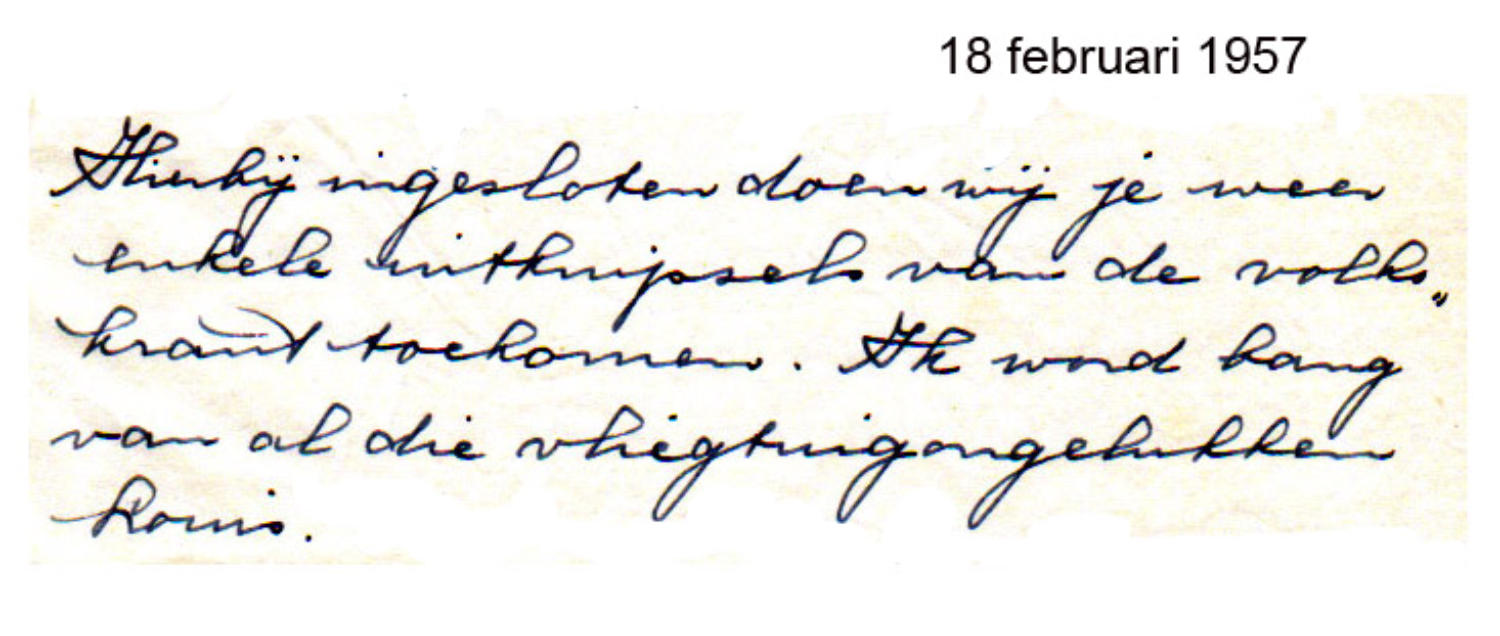 18 februari 1957
Hierbij ingesloten doen wij je weer
enkele uitknipsels van de volks„
krant toekomen. Ik word bang
van al die vliegtuigongelukken